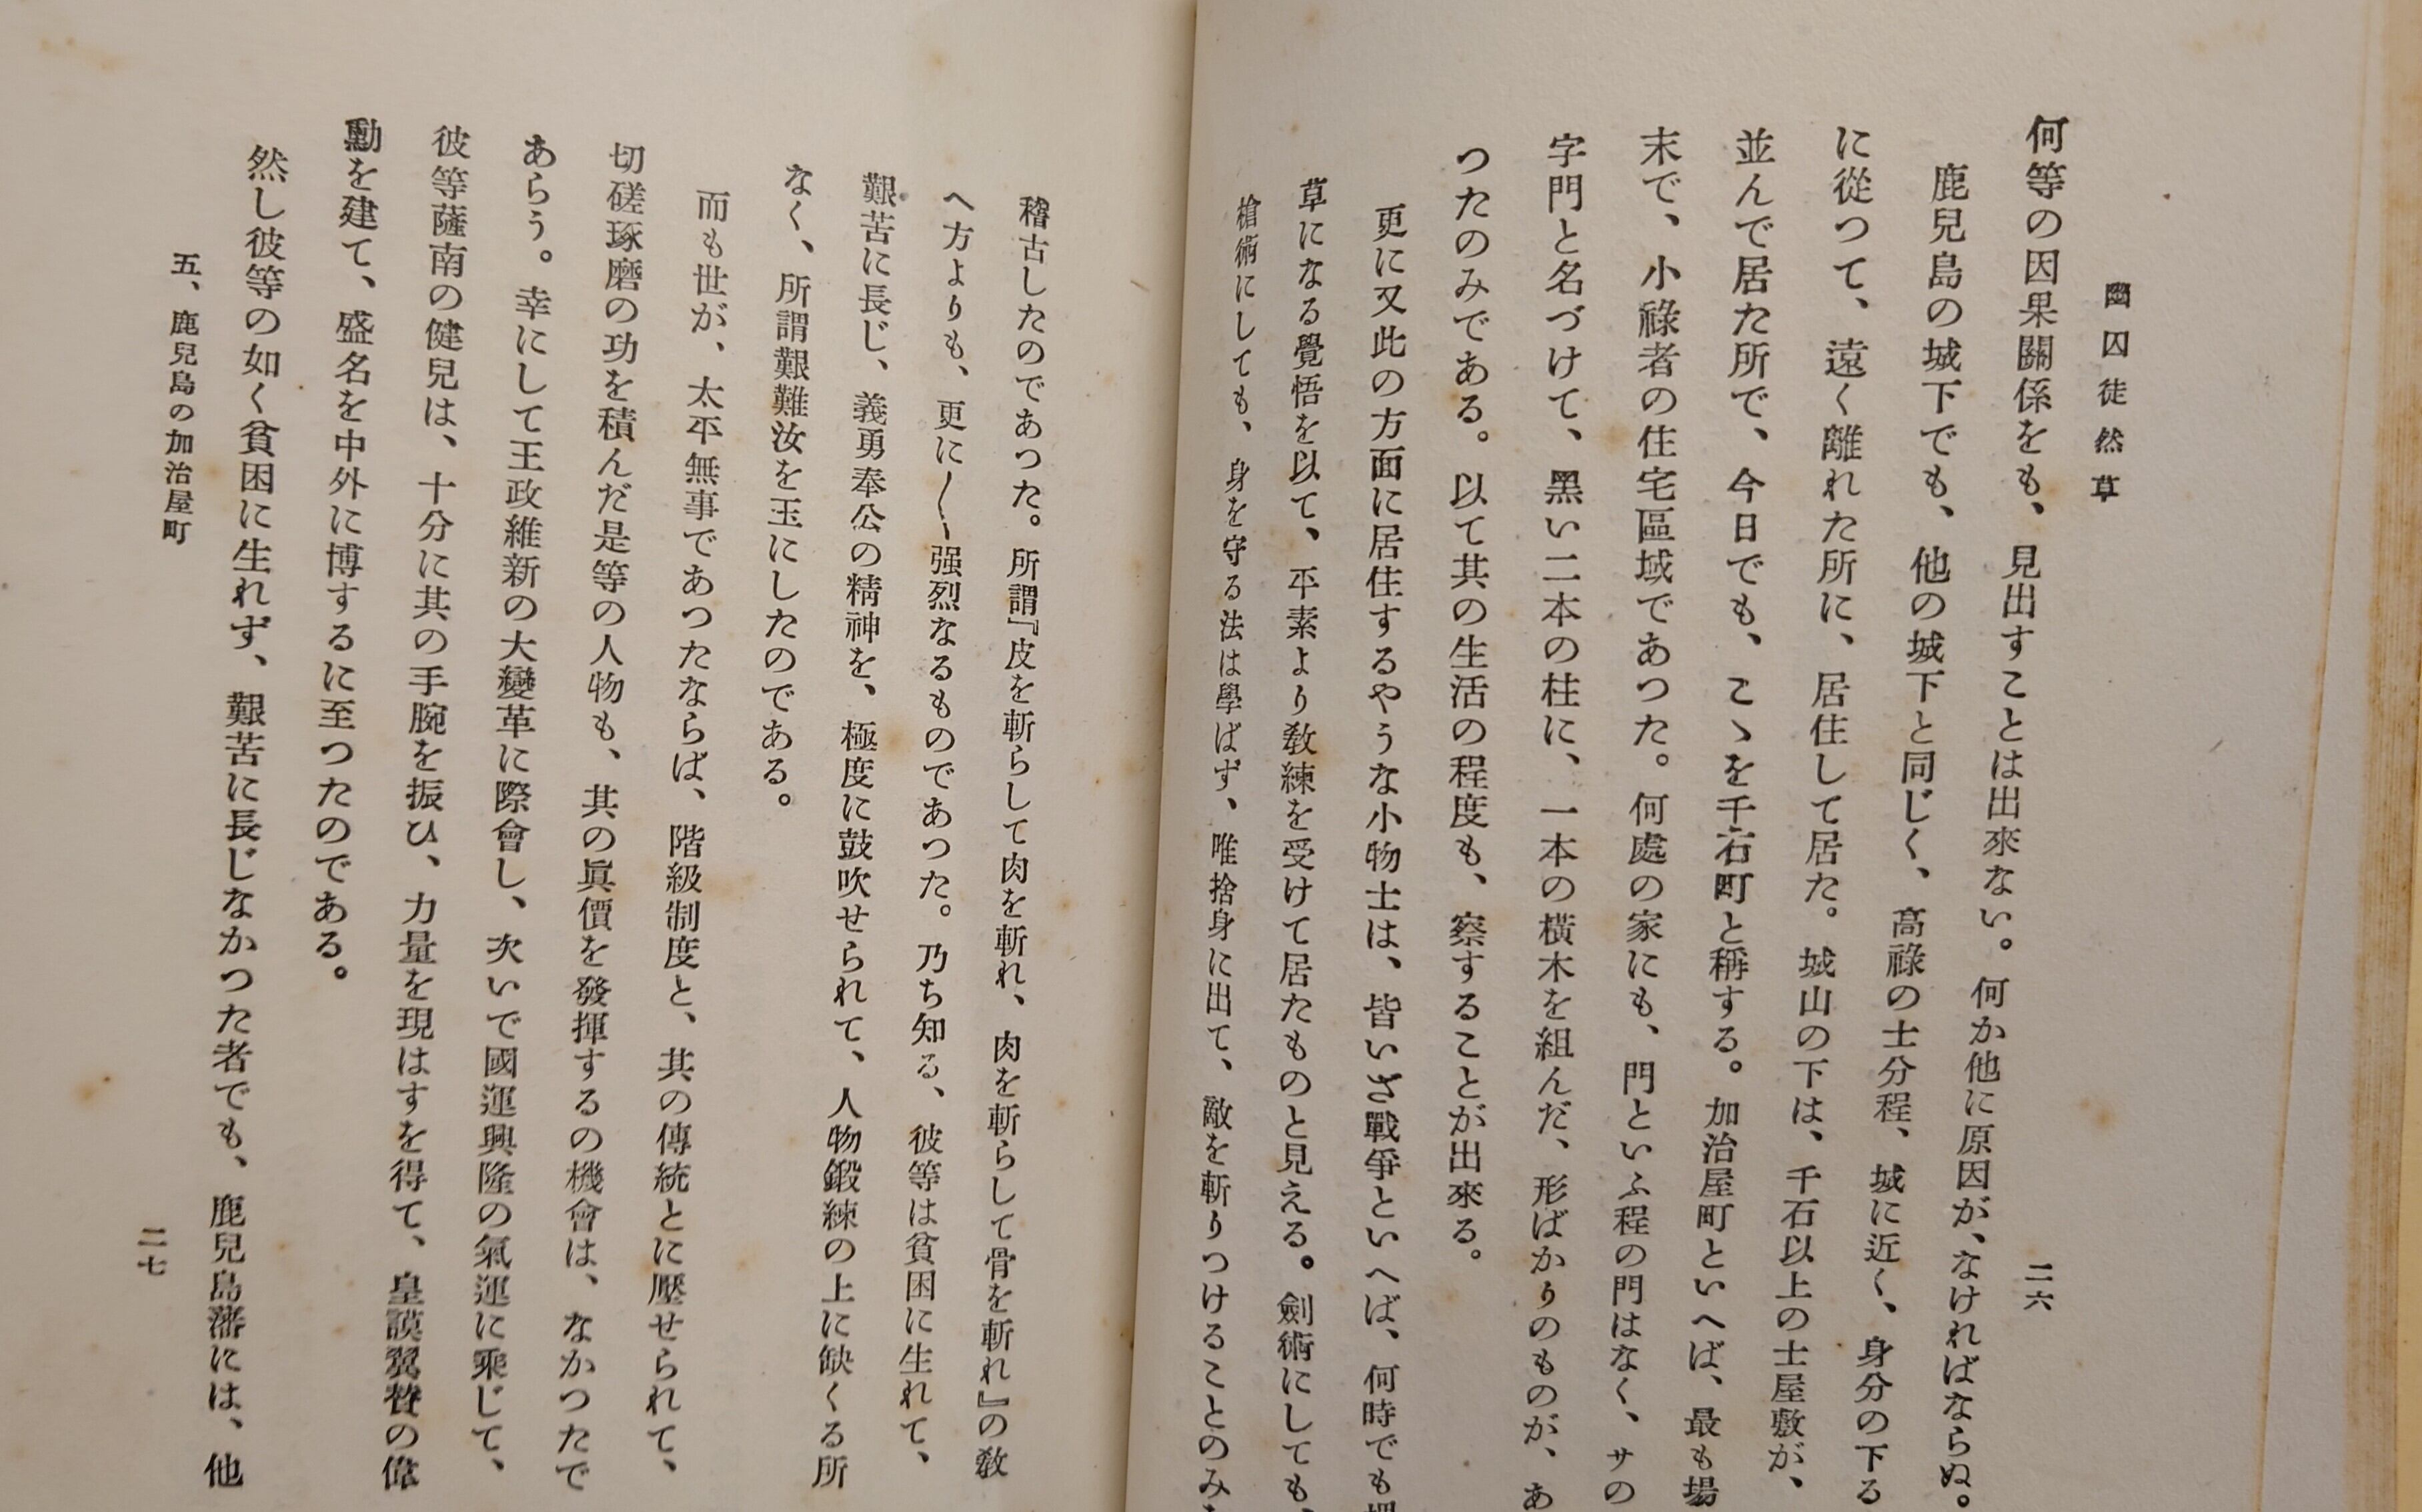 幽囚徒然草
二六
何等の因果關係をも、見出すことは出來ない。何か他に原因が、なければならぬ。
鹿兒島の城下でも、他の城下と同じく、高祿の士分程、城に近く、身分の下る
に從つて、遠く離れた所に、居住して居た。城山の下は、千石以上の士屋敷が、
並んで居た所で、今日でも、こゝを千石町と稱する。加治屋町といへば、最も場
末で、小祿者の住宅區域であつた。何處の家にも、門といふ程の門はなく、サの
字門と名づけて、黑い二本の柱に、一本の橫木を組んだ、形ばかりのものが、あ
つたのみである。以て其の生活の程度も、察することが出來る。
更に又此の方面に居住するやうな小物士は、皆いざ戰爭といへば、何時でも
草になる覺悟を以て、平素より敎練を受けて居たものと見える。劍術にしても、
槍術にしても、身を守る法は學ばず、唯捨身に出て、敵を斬りつけることのみ
稽古したのであつた。所謂『皮を斬らして肉を斬れ、肉を斬らして骨を斬れ』の敎
へ方よりも、更に〱强烈なるものであつた。乃ち知る、彼等は貧困に生れて、
艱苦に長じ、義勇奉公の精神を、極度に鼓吹せられて、人物鍛練の上に缺くる所
なく、所謂艱難汝を玉にしたのである。
而も世が、太平無事であつたならば、階級制度と、其の傳統とに壓せられて、
切磋琢磨の功を積んだ是等の人物も、其の眞價を發揮するの機會は、なかつたで
あらう。幸にして王政維新の大變革に際會し、次いで國運興隆の氣運に乘じて、
彼等薩南の健兒は、十分に其の手腕を振ひ、力量を現はすを得て、皇謨翼贊の偉
勳を建て、盛名を中外に博するに至つたのである。
然し彼等の如く貧困に生れず、艱苦に長じなかつた者でも、鹿兒島藩には、他
五、鹿兒島の加治屋町
二七